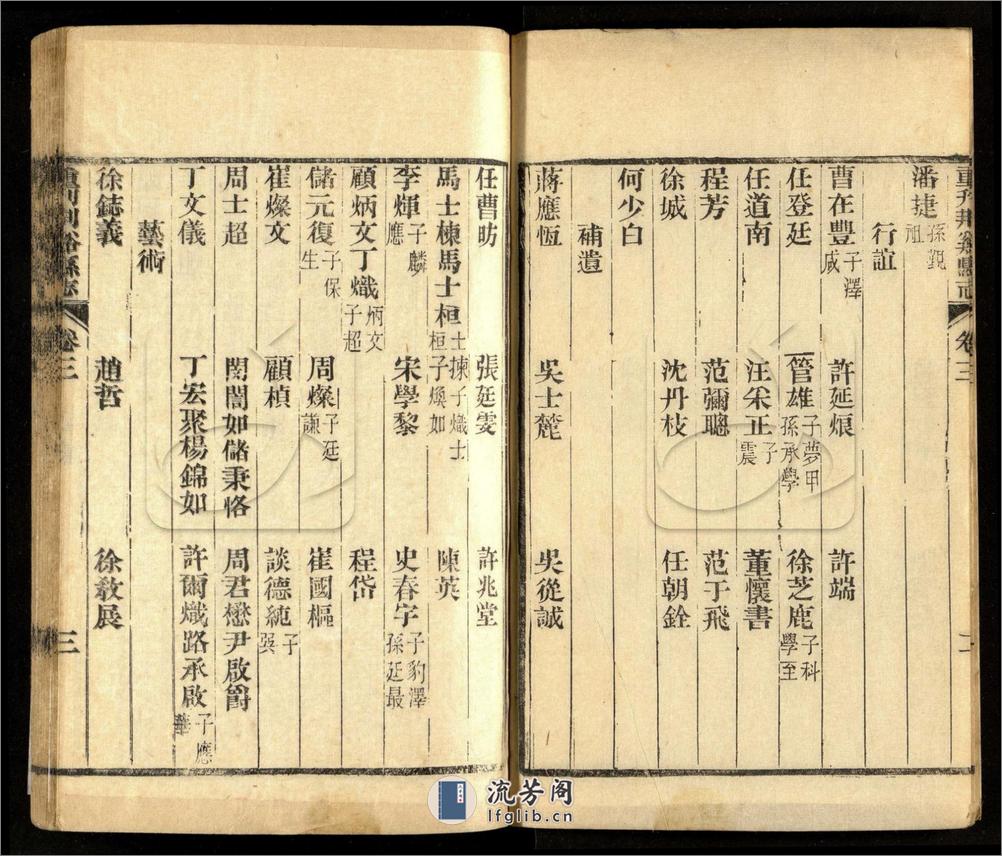 重刊荆谿縣志 卷三 二
潘捷孫觀祖
行誼
曹在豐子澤咸 許延烺 許端
任登廷 管雄子夢甲孫承學 徐芝鹿子科學至
任道南 汪釆正子震 董懷書
程芳 范彌聰 范于飛
徐城 沈丹枝 任朝銓
何少白
補遺
蔣應恆 吳士麓 吳從誠
任曹昉 張廷雯 許兆堂
馬士楝馬士桓士楝子熾士桓子煥如 陳英
李煇子麟應 宋學黎 史春宇子豹澤孫廷最
顧炳文丁熾炳文子超 程岱
儲元復子保生 周燦子廷謙 崔國樞
崔燦文 顧楨 談德純子巽
周士超 閔閣如儲秉恪 周君懋尹啟爵
丁文儀 丁宏聚楊錦如 許爾熾路承啟子應華
藝術
徐鋕義 趙哲 徐敎展
重刊荆谿縣志 卷三 三
流芳阁
lfglib.cn